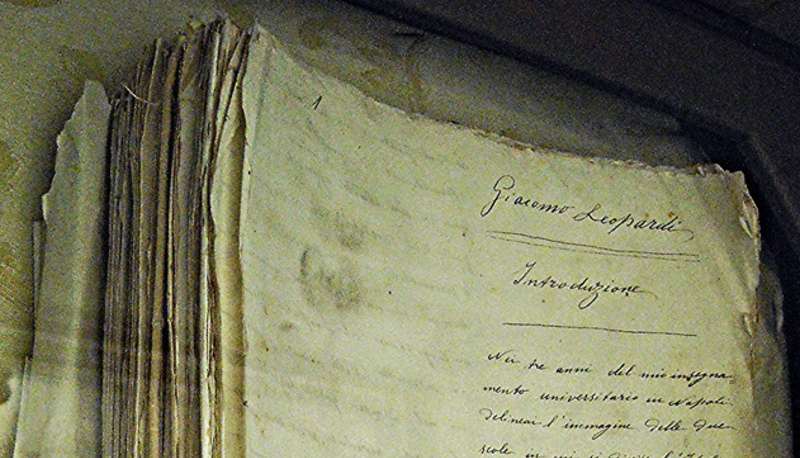 1
Giacomo Leopardi
Introduzione
Nei tre anni del mio insegna-
mento universitario in Napoli
delineai l'immagine delle due
scole in cui si divise l'